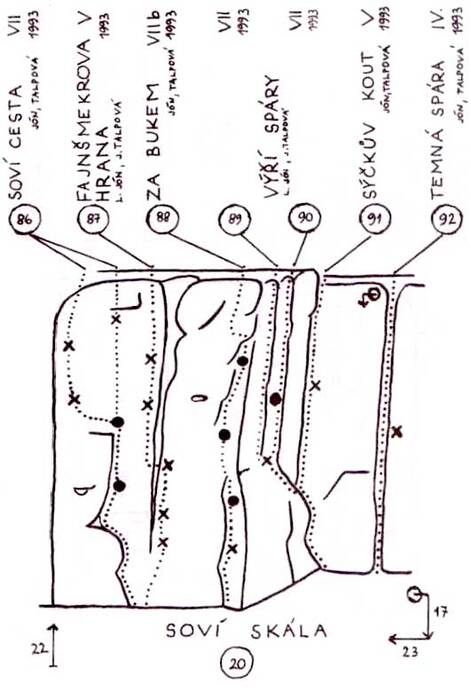 SOVÍ CESTA VII
JÓN, TALPOVÁ 1993
FAJNŠMEKROVA V
HRANA 1993
L. JÓN, J. TALPOVÁ
ZA BUKEM VIIb
JÓN, TALPOVÁ 1993
VII
1993
VÝŘÍ SPÁRY VII
L. JÓN, J. TALPOVÁ 1993
SÝČKŮV KOUT V
JÓN, TALPOVÁ 1993
TEMNÁ SPÁRA IV.
JÓN, TALPOVÁ 1993
86
87
88
89
90
91
92
SOVÍ SKÁLA
20
22
17
23